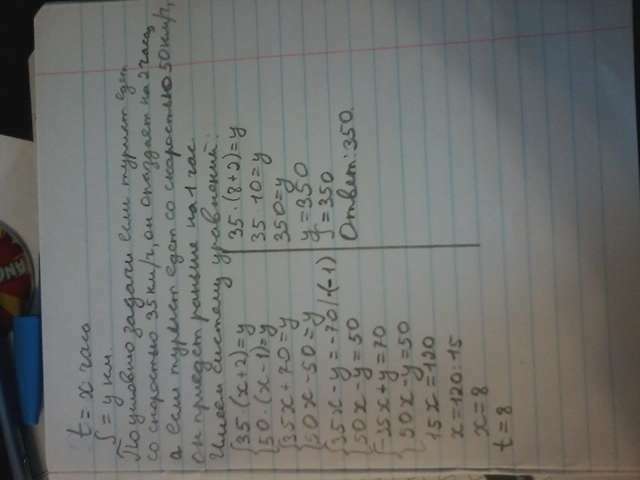 t = x часа
S = y км.
По условию задачи если турист едет
со скоростью 35 км/ч, он опаздает на 2 часа,
а если турист едет со скоростью 50 км/ч,
он приедет раньше на 1 час.
Имеем систему уравнений:
{35·(x+2)=y
{50·(x-1)=y
{35x+70=y
{50x-50=y
{35x-y=-70 |·(-1)
{50x-y=50
{-35x+y=70
{50x-y=50
15x=120
x=120:15
x=8
t=8
35·(8+2)=y
35·10=y
350=y
y=350
S=350
Ответ: 350.